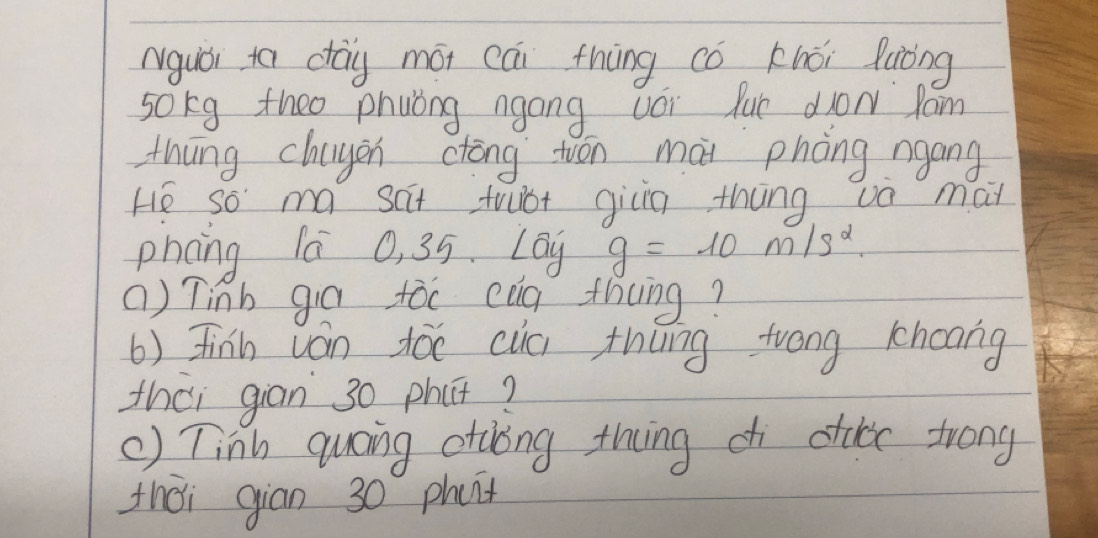 Người ta đẩy một cái thùng có khối lượng
50kg theo phương ngang với lực 210N làm
thùng chuyển động trên mặt phẳng ngang
Hệ số ma sát trượt giữa thùng và mặt
phẳng là 0,35. Lấy g = 10 m/s².
a) Tính gia tốc của thùng ?
b) Tính vận tốc của thùng trong khoảng
thời gian 30 phút ?
c) Tính quãng đường thùng đi được trong
thời gian 30 phút